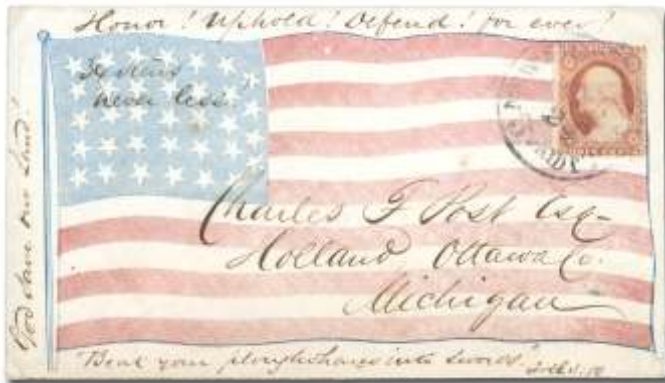 Honor! Uphold! Defend! for ever!
34 stars
never less!
God save our Land!
Charles F Post Esq-
Holland Ottawa Co.
Michigan
"Beat your ploughshares into swords"